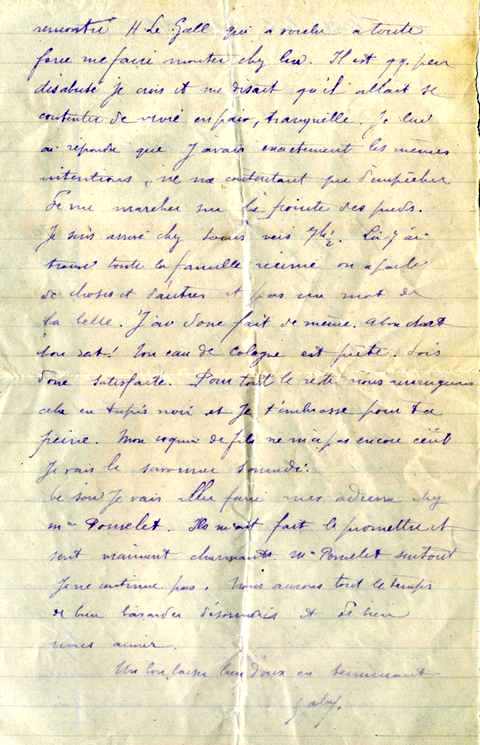 rencontré M Le Gall qui a voulu à toute
force me faire monter chez lui. Il est qq. peu
désabusé je crois et me disait qu'il allait se
contenter de vivre en paix, tranquille. Je lui
ai répondu que j'avais exactement les mêmes
intentions, ne me contentant que d'empêcher
de me marcher sur la pointe des pieds.
Je suis arrivé chez vers 7h½. Là j'ai
trouvé toute la famille réunie on a parlé
de choses et d'autres et pas un mot de
ta lettre. J'ai donc fait de même.
Ton eau de Cologne est prête. Sois
donc satisfaite. Pour tout le reste nous
cela en tapis noir et je t'embrasse pour ta
peine. Mon coquin de fils ne m'a pas encore écrit
Je vais le savonner
Ce soir je vais aller faire mes adieux chez
Mme Pomelet. Ils m'ont fait le promettre et
sont vraiment charmants Me Pomelet surtout
Je ne continue pas. Nous aurons tout le temps
de bien bavarder désormais et de bien
nous aimer.
Un bon baiser bien doux en terminant
Gaby.